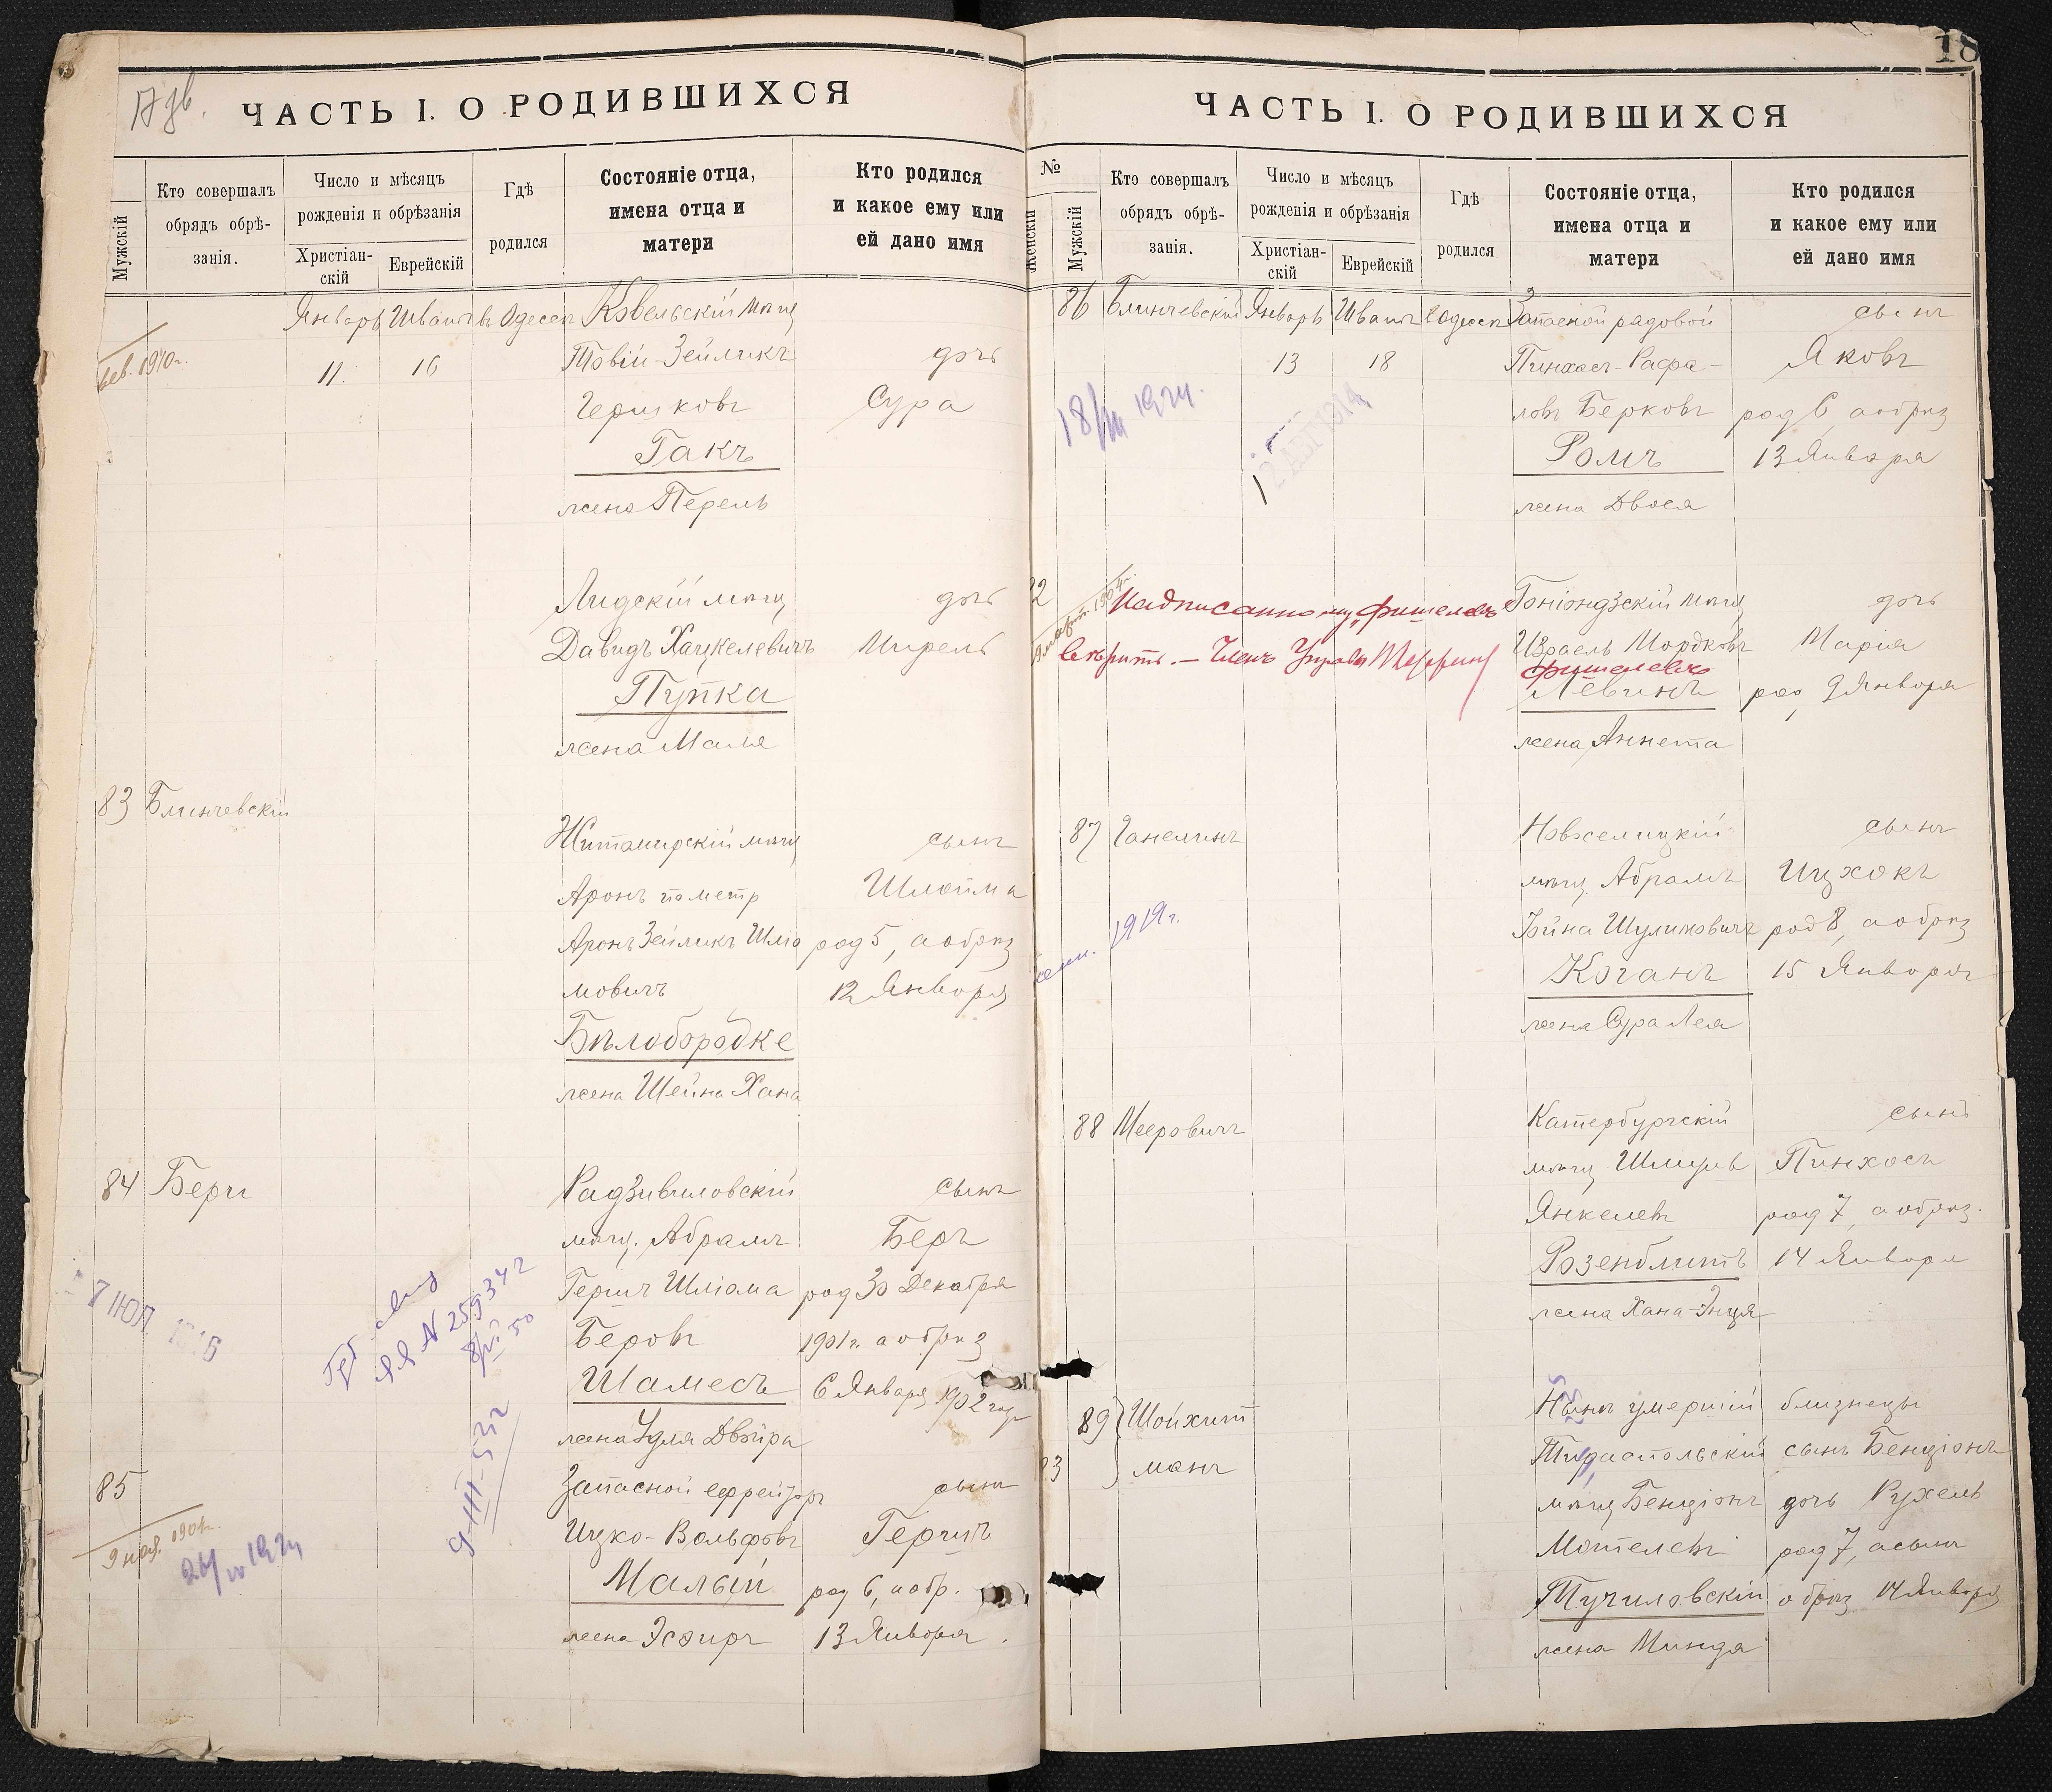 17 дв.
ЧАСТЬ I. О РОДИВШИХСЯ
Мужскій
Кто совершалъ обрядъ обрѣ-занія.
Число и мѣсяцъ рожденія и обрѣзанія
Христіан-скій
Еврейскій
Гдѣ родился
Состояніе отца, имена отца и матери
Кто родился и какое ему или ей дано имя
Январь Шватъ въ Одессѣ Ковельскій мѣщ
11. 16 Товій-Зейликъ дочь
Гершковъ Сура
Гакъ
жена Перель
1910 г.
Лидскій мѣщ дочь
Давидъ Хацкелевичъ Мирель
Пупка
жена Маля
83 Блинчевскій
Житомирскій мѣщ сынъ
Аронъ по метр Шлойма
Аронъ Зейликъ Шліо род 5, а обрѣз
мовичъ 12 Января
Бѣлобородке
жена Шейна Хана
84 Бери Радзивиловскій сынъ
мѣщ. Абрамъ Беръ
Гершъ Шліома род 30 Декабря
Беровъ 1901 г. а обрѣз
Шамесъ 6 Января 1902 год
жена Удля Двойра
7 ІЮЛ 1915
ЯЯ № 259342
8/VII 50
9-III-52 г
85 Запасной ефрейторъ сынъ
Ицко-Вольфовъ Гершъ
Малый род 6, а обр.
жена Эсфирь 13 Января.
9 ноя. 1901 г.
1924
18
ЧАСТЬ I. О РОДИВШИХСЯ
№
Женскій
Мужскій
Кто совершалъ обрядъ обрѣ-занія.
Число и мѣсяцъ рожденія и обрѣзанія
Христіан-скій
Еврейскій
Гдѣ родился
Состояніе отца, имена отца и матери
Кто родился и какое ему или ей дано имя
86 Блинчевскій Январь Шватъ Одессѣ Запасной рядовой сынъ
13 18 Пинхасъ-Рафа- Яковъ
ловъ Берковъ род 6, а обрѣз
Ромъ 13 Января
жена Двося
18/III 1924.
2 АВГ 1914
2 Гоніондзскій мѣщ дочь
Надписанному „Фишелевъ
Израель Мордковъ Марія
вѣрить. — Членъ Управы
Фишелевъ
Левинъ род 9 Января
жена Аннета
87 Ганелинъ Новоселицкій сынъ
мѣщ. Абрамъ Ицхокъ
Іойна Шулимовичъ род 8, а обрѣз
Коганъ 15 Января
жена Сура Лея
1919 г.
88 Мееровичъ Катербургскій сынъ
мѣщ Пинхосъ
Янкелевъ род 7, а обрѣз.
Розенблитъ 14 Января
жена Хана-Энця
89 Шойхит Нынѣ умершій близнецы
манъ Тираспольскій сынъ Бенціонъ
мѣщ Бенціонъ дочь Рухель
Мотелевъ род 7, а сынъ
Тучиловскій обрѣз 14 Января
жена Минда